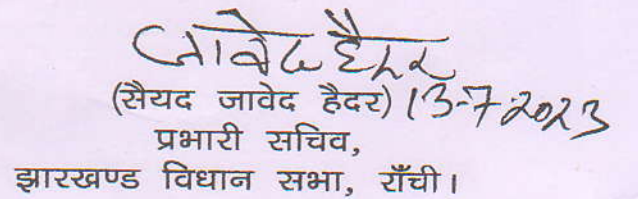 जावेद हैदर
(सैयद जावेद हैदर) 13-7-2023
प्रभारी सचिव,
झारखण्ड विधान सभा, राँची।